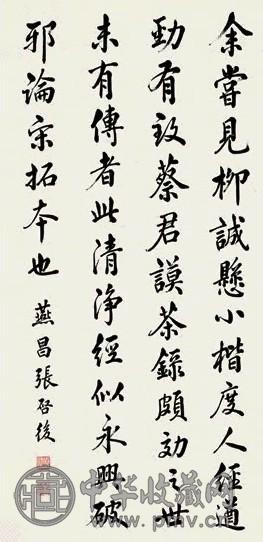 余嘗見柳誠懸小楷度人經遒
勁有致蔡君謨茶錄頗効之世
未有傳者此清淨經似永興破
邪論宋拓本也
燕昌張啓後
中华收藏网